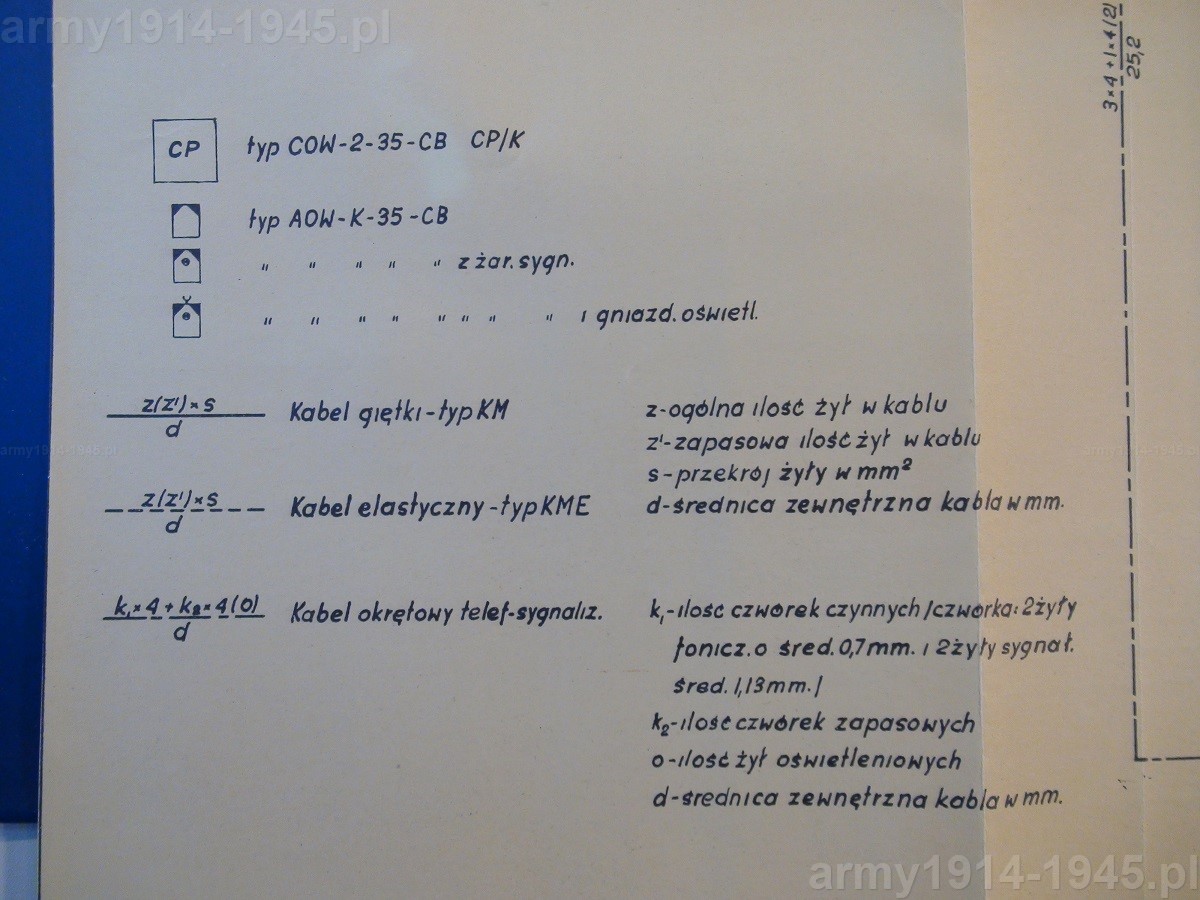 army1914-1945.pl
3×4+1×4(2)
25,2
CP typ COW-2-35-CB CP/K
typ AOW-K-35-CB
" " " " " z żar. sygn.
" " " " " " " " i gniazd. oświetl.
z(z')×s
d
Kabel giętki-typ KM
z-ogólna ilość żył w kablu
z'-zapasowa ilość żył w kablu
s-przekrój żyły w mm²
z(z')×s
d
Kabel elastyczny-typ KME
d-średnica zewnętrzna kabla w mm.
army1914-1945.pl
army1914-1945.pl
k₁×4+k₂×4(0)
d
Kabel okrętowy telef-sygnaliz.
k₁-ilość czwórek czynnych /czwórka: 2żyły
fonicz. o śred. 0,7mm. i 2żyły sygnał.
śred. 1,13mm./
k₂-ilość czwórek zapasowych
o-ilość żył oświetleniowych
d-średnica zewnętrzna kabla w mm.
army1914-1945.pl